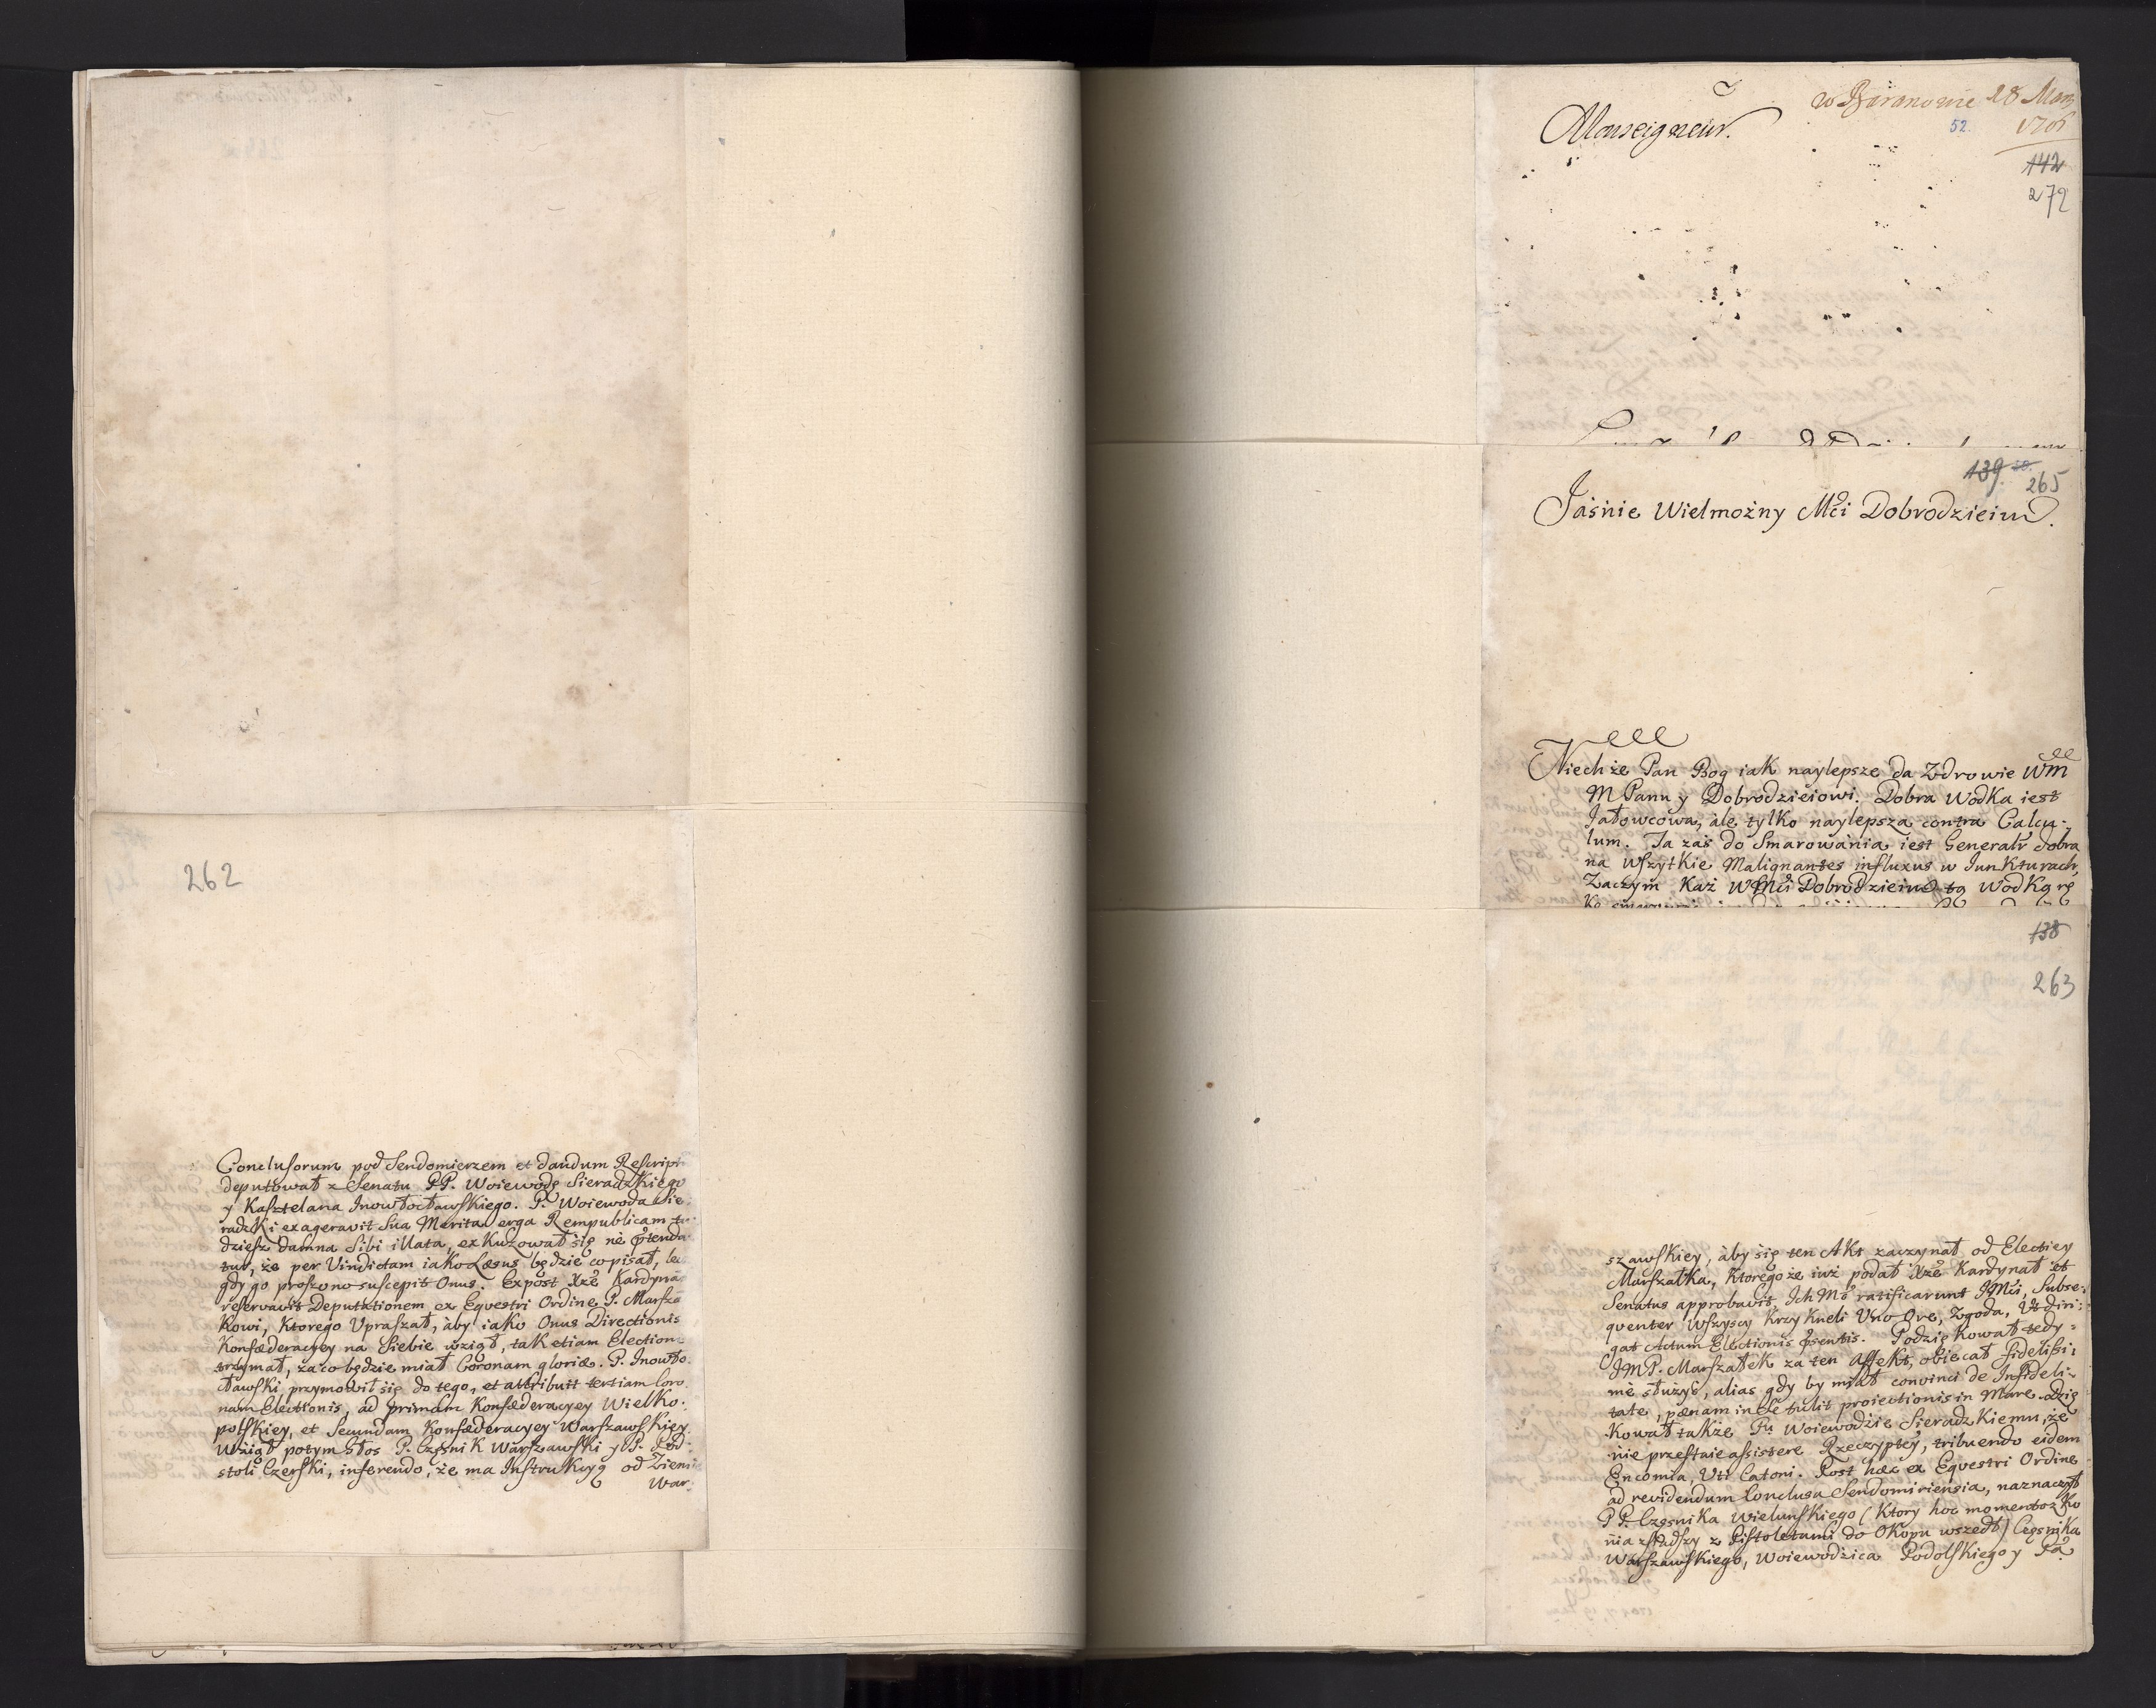 262
Conclusorum pod Sendomierzem et dandum Rescript
deputował z Senatu PP. Woiewodę Sieradzkiego
y Kasztelana Inowłocławskiego. P. Woiewoda Sie-
radzki exageravit Sua Merita erga Rempublicam tu-
dziesz damna Sibi illata, exkuzował się nè
tur, że per Vindictam iako Læsus będzie co pisał, lecz
gdy go proszono suscepit Onus. Expost Xże Kardynał
reservavit Deputationem ex Eqvestri Ordine P. Marszał
kowi, ktorego Upraszał, aby iako Onus Directionis
Konfæderacyey na Siebie wziął, tak etiam Election
trzymał, za co będzie miał Coronam gloriæ. P. Inowło
cławski przymowił się do tego, et attribuit tertiam Coro
nam Electionis, ad primam Konfæderacyey Wielko-
polskiey, et Secundam Konfæderacyey Warszawskiey.
Wziął potym Głos P. Cześnik Warszawski y P. Pod-
stoli Czerski, inferendo, że ma Instrukcyą od Ziemi
War-
w Baranowie 28 Marz
52. 1706
Monseigneur.
142
272
139
265
Jaśnie Wielmożny Mći Dobrodzieiu.
Niechże Pan Bog iak naylepsze da Zdrowie Wm
M Panu y Dobrodzieiowi. Dobra Wodka iest
Jałowcowa, ale tylko naylepsza contra Calcu-
lum. Ta zaś do Smarowania iest Generalr dobra
na wszytkie Malignantes influxus w Junkturach,
Zaczym Każ WMći Dobrodzieiu tą Wodką rę
138
263
szawskiey, aby się ten Akt zaczynał od Electiey
Marszałka, ktorego że iuż podał Xże Kardynał et
Senatus approbavit, Ich Mć ratificarunt JMći, Subse-
qventer Wszyscy krzyknęli Uno Ore, Zgoda, Ut diri-
gat Actum Electionis Psentis. Podziękował tedy
JMP. Marszałek za ten Affekt, obiecał fidelissi-
mè służyć, alias gdy by miał convinci de Infideli-
tate, pænam in Se tulit proiectionis in Mare. dzię
kował także Pu Woiewodzie Sieradzkiemu, że
nie przestaie assistere Rzeczyptey, tribuendo eidem
Encomia, Uti Catoni. Post hæc ex Eqvestri Ordine
ad revidendum Conclusa Sendomiriensia, naznaczył
PP. Cześnika Wieluńskiego (ktory hoc momento z ko
nia zsiadszy z Pistoletami do Okopu wszedł) Cześnika
Warszawskiego, Woiewodzica Podolskiego y Pa